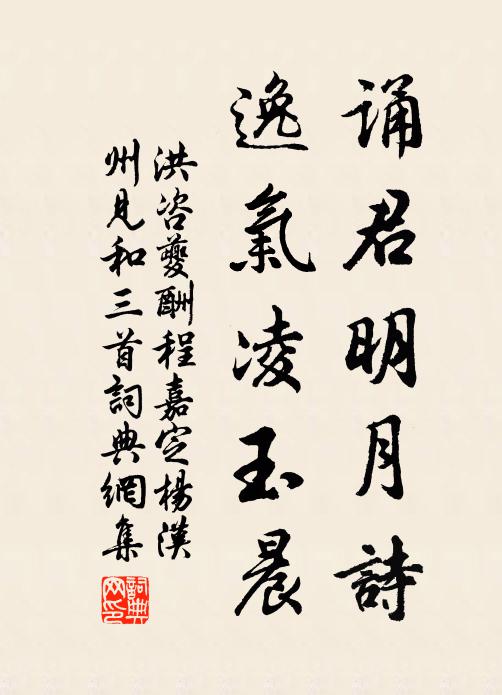 诵君明月詩
逸氣凌玉晨
洪咨夔酬程嘉定楊漢
州見和三首詞典網集
詞典网印